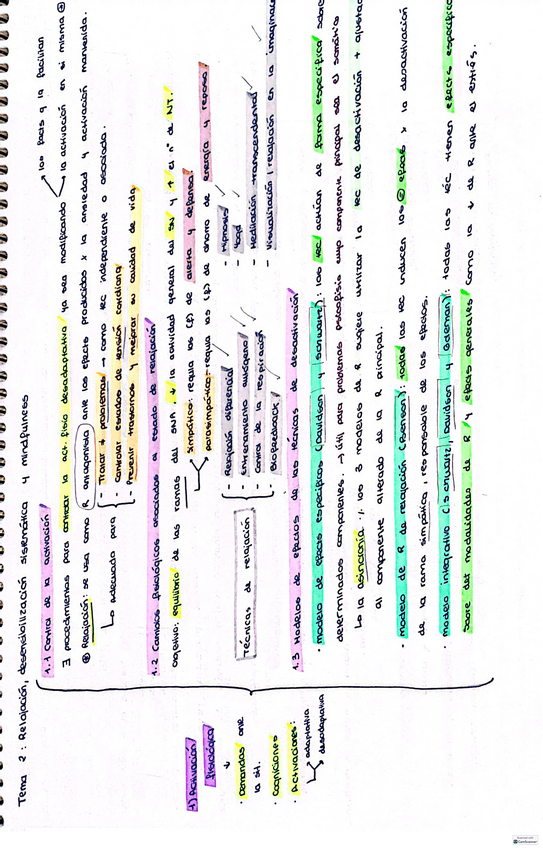 Tema 2: Relajación, desensibilización sistemática y mindfulness
1) Activación
fisiológica
↓
· Demandas ante
la sit.
· Cogniciones
· Activaciones:
adaptativa
desadaptativa
1.1 Control de la activación
∃ procedimientos para controlar la act. fisio desadaptativa ya sea modificando
los facts q la facilitan
la activación en sí misma ⊕
⊕ Relajación: se usa como R antagonista ante los efects producidos x la ansiedad y activación mantenida.
↳ adecuado para
- Tratar ≠ problemas → como tec independiente o asociada.
- Controlar estados de tensión cotidiana
- Prevenir trastornos y mejorar su calidad de vida
1.2 Cambios fisiológicos asociados a estado de relajación
Objetivo: equilibrio de las ramas del SNA. ↓ la actividad general del SN y ↓ el nº de NT.
simpático: regula las (f) de alerta y defensa.
parasimpático: regula las (f) de ahorro de energía y reposo.
Técnicas de relajación
- Relajación diferencial
- Entrenamiento autógeno
- Control de la respiración
- Biofeedback
- Hipnosis
- Yoga
- Meditación transcendental
- Visualización / relajación en la
1.3 Modelos de efectos de las técnicas de desactivación
· Modelo de efects específicos (Davidson y Schwartz): las tec actúan de forma específica sobre
determinados componentes. → útil para problemas psicofisio cuyo componente principal sea el somático
↳ la asincronía % los 3 modelos de R sugiere utilizar la tec de desactivación + ajustada
al componente alterado de la R principal.
· Modelo de R de relajación (Benson): todas las tec inducen los ⊜ efects x la desactivación
de la rama simpática, responsable de los efectos.
· Modelo integrativo (Schwartz, Davidson y Goleman): todas las tec tienen efects específicos
sobre det modalidades de R y efects generales como la ↓ de R ante el estrés.
CamScanner